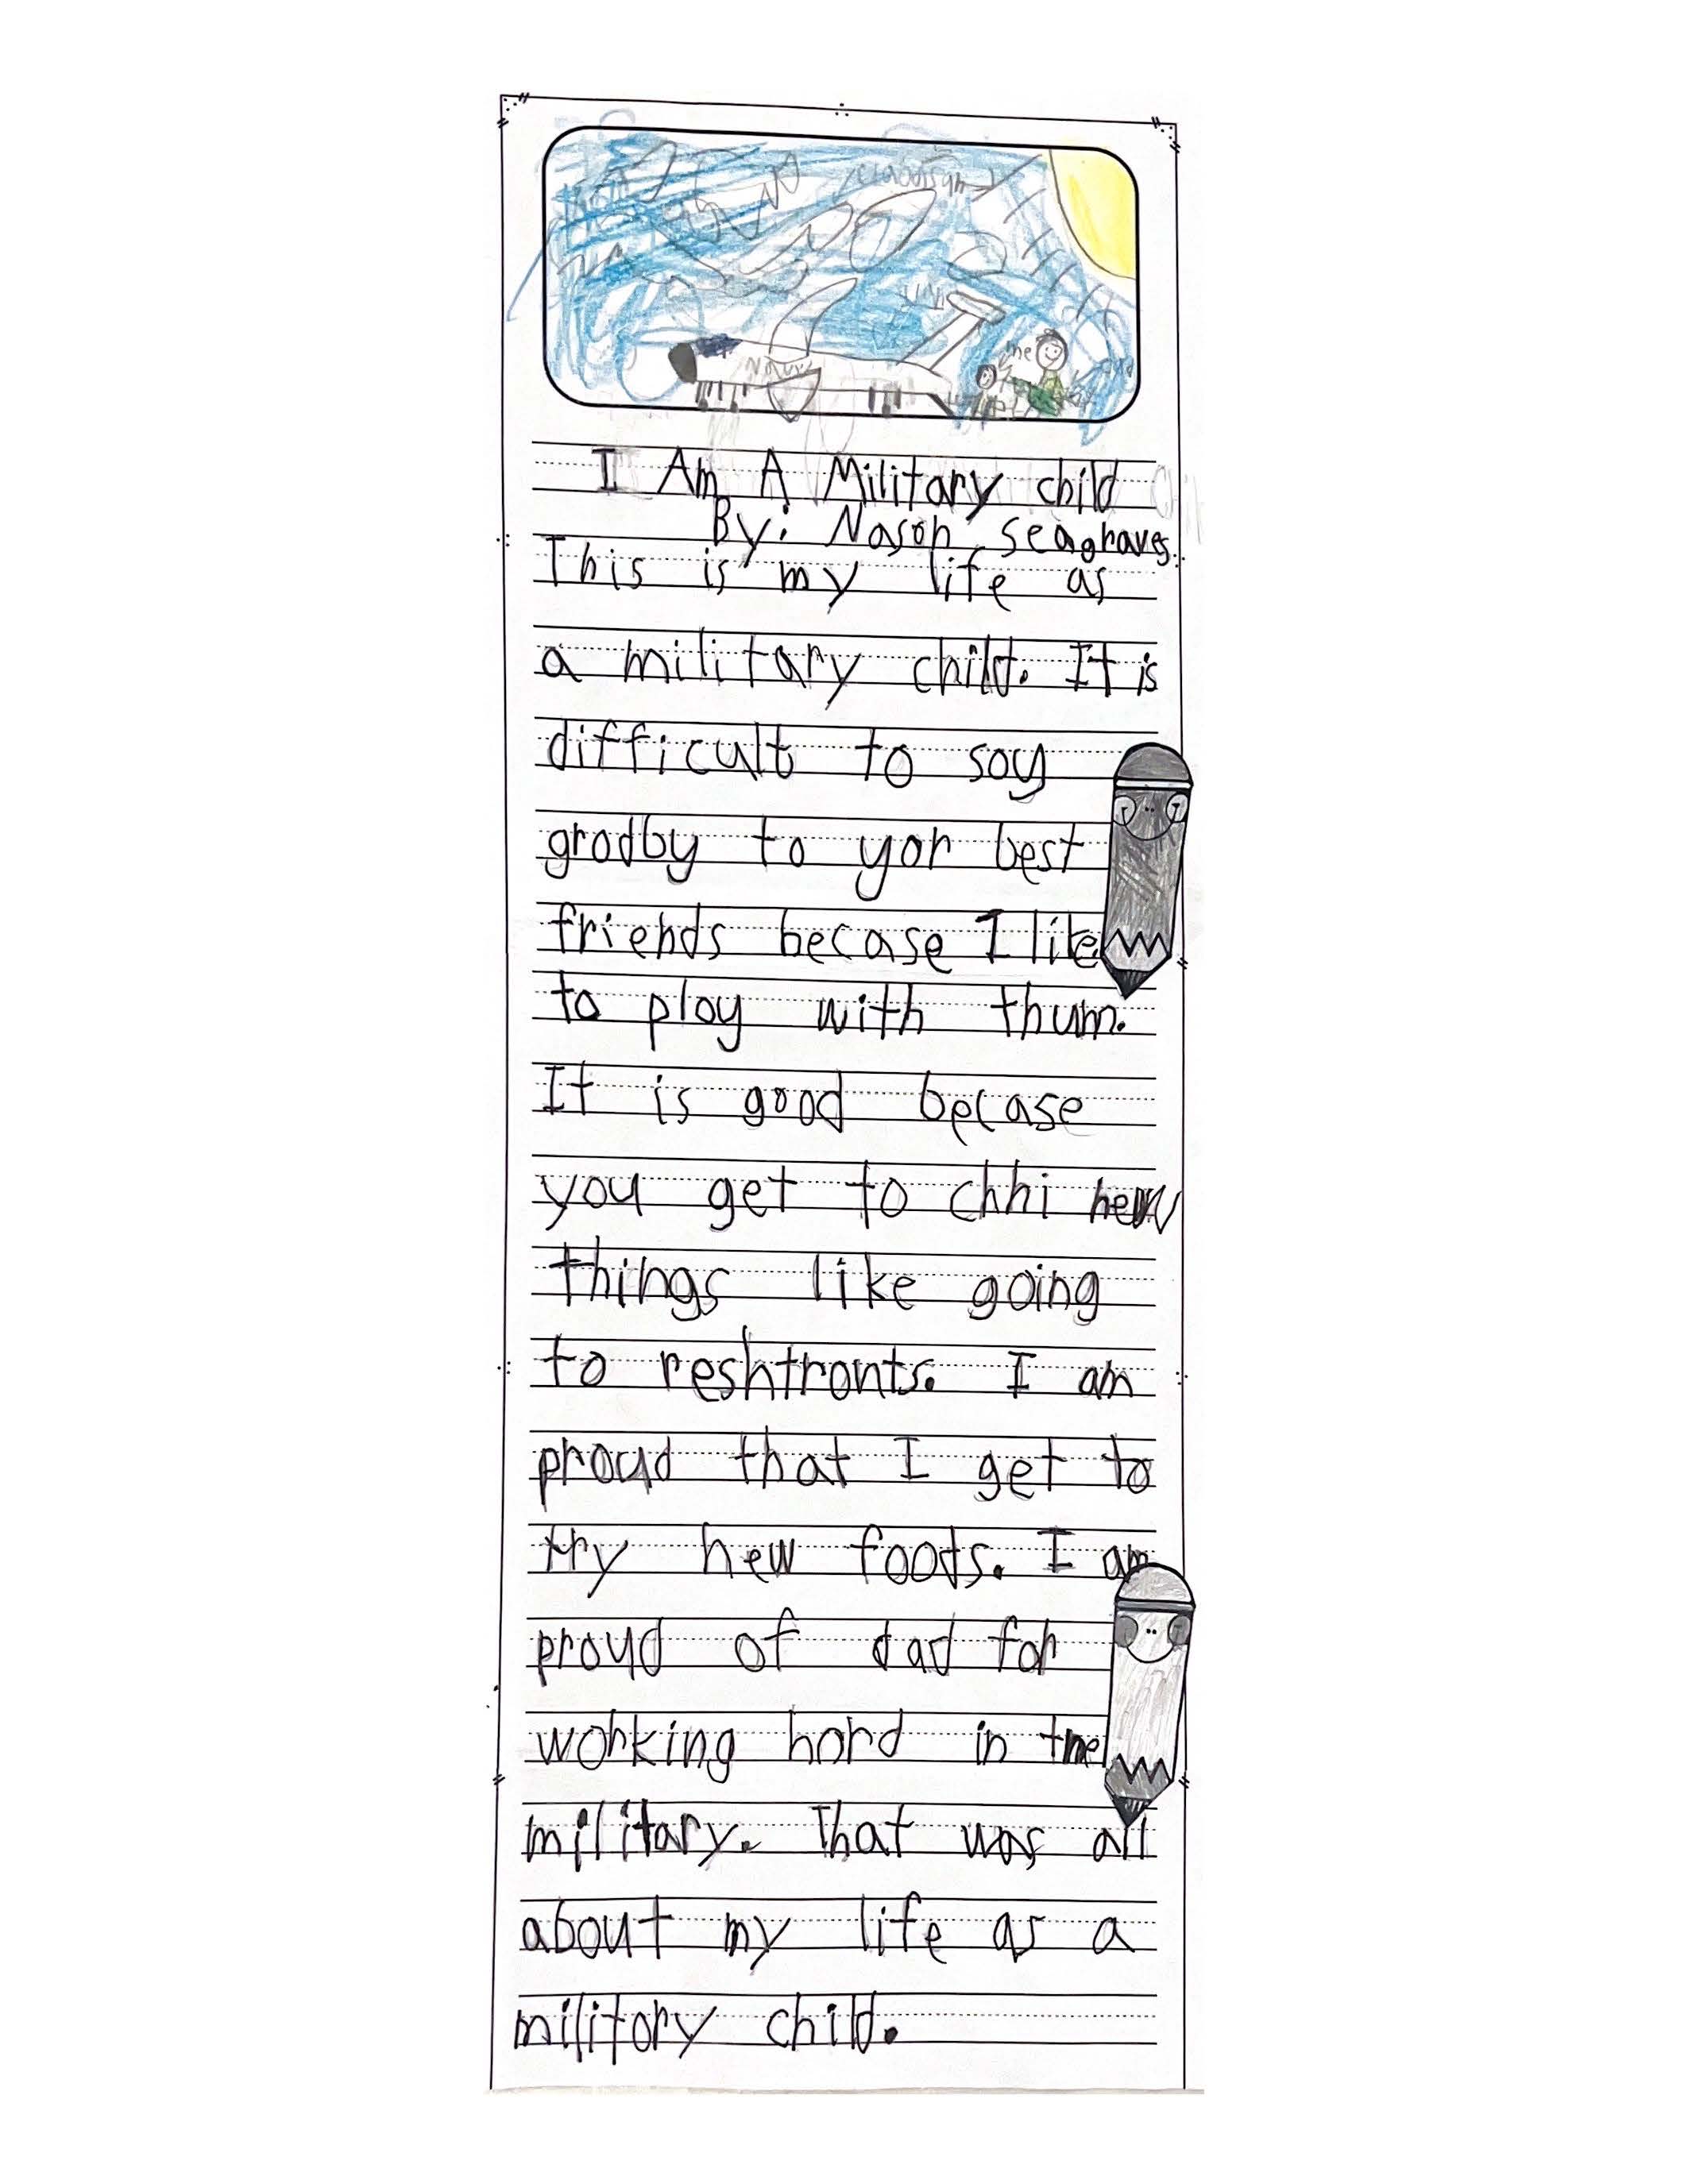 Navy
me
dad
I Am A Military child
By: Nason Seagraves
This is my life as
a military child. It is
difficult to say
grodby to yor best
friends becase I like
to play with thum.
It is good becase
you get to chhi new
things like going
to reshtronts. I am
proud that I get to
try new foods. I am
proud of dad for
working hard in the
military. That was all
about my life as a
military child.